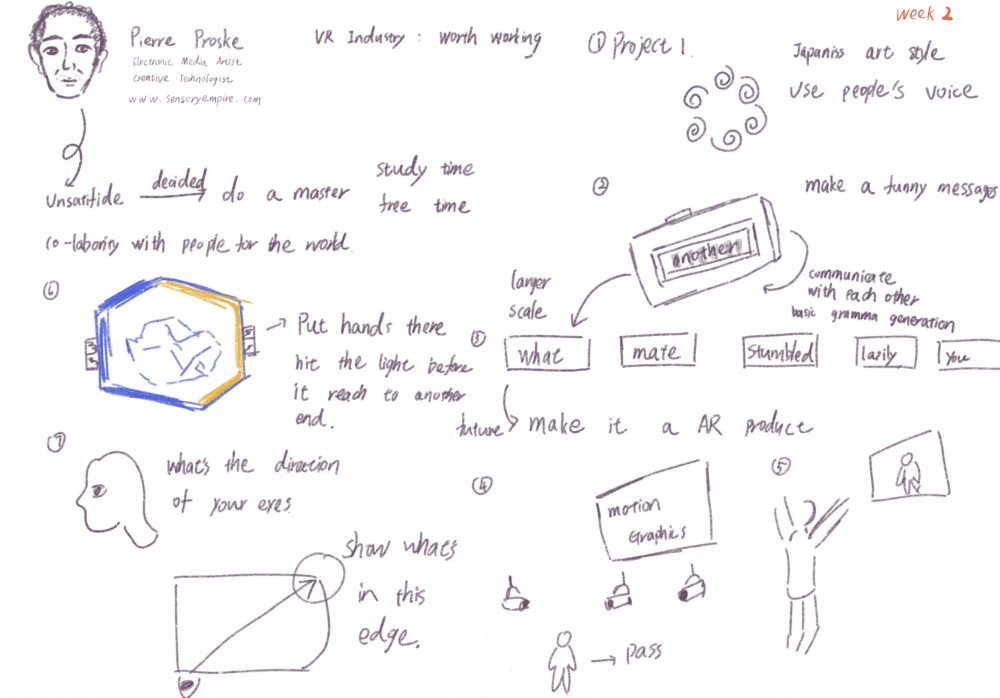 week 2
Pierre Proske
Electronic Media Artist
Creative Technologist
www.sensoryempire.com
VR Industry : worth working
① Project 1.
Japaniss art style
use people's voice
Unsatifide decided do a master
study time
free time
co-laboriy with people for the world.
②
make a funny messages
another
communicate
with each other
basic gramma generation
larger
scale
③
what
mate
stumbled
lazily
you
future make it a AR product
⑥
Put hands there
hit the light before
it reach to another
end.
⑦
what's the direction
of your eyes.
show what's
in this
edge.
④
motion
Graphics
pass
⑤